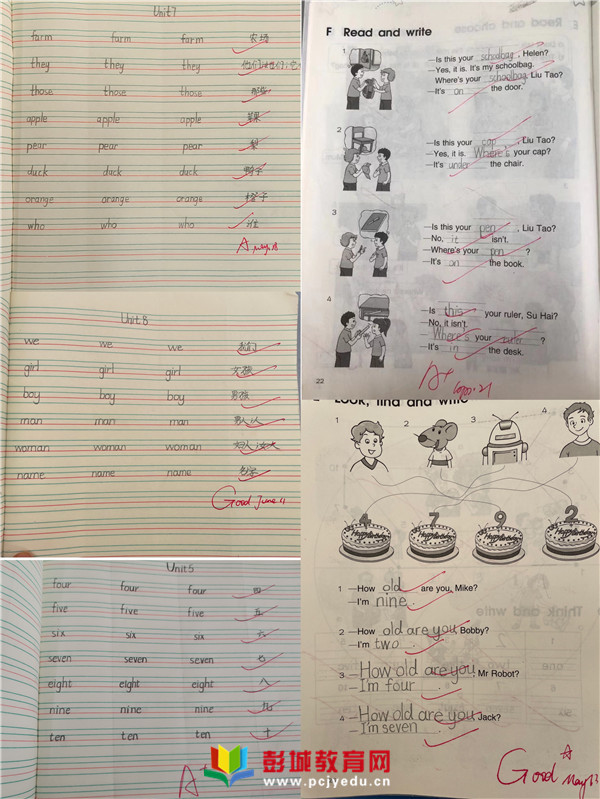 Unit7
farm farm farm 农场
they they they
those those those 那些
apple apple apple 苹果
pear pear pear 梨
duck duck duck 鸭子
orange orange orange 橙子
who who who 谁
A May.18
Unit 8
we we we 我们
girl girl girl 女孩
boy boy boy 男孩
man man man 男人
woman woman woman
name name name 名字
Good June 11
Unit5
four four four 四
five five five 五
six six six 六
seven seven seven 七
eight eight eight 八
nine nine nine 九
ten ten ten 十
A+
F Read and write
1
—Is this your schoolbag, Helen?
—Yes, it is. It's my schoolbag.
Where's your schoolbag, Liu Tao?
—It's on the door.
2
—Is this your cap, Liu Tao?
—Yes, it is. Where's your cap?
—It's under the chair.
3
—Is this your pen, Liu Tao?
—No, it isn't.
—Where's your pen ?
—It's on the book.
4
—Is this your ruler, Su Hai?
—No, it isn't.
Where's your ruler ?
—It's in the desk.
22
A+
Look, find and write
1 2 3 4
4 7 9 2
Happy Birthday Happy Birthday Happy Birthday Happy Birthday
1 —How old are you, Mike?
—I'm nine.
2 —How old are you, Bobby?
—I'm two.
3 —How old are you, Mr Robot?
—I'm four.
4 —How old are you, Jack?
—I'm seven.
Good A May13
彭城教育网
www.pcjyedu.cn